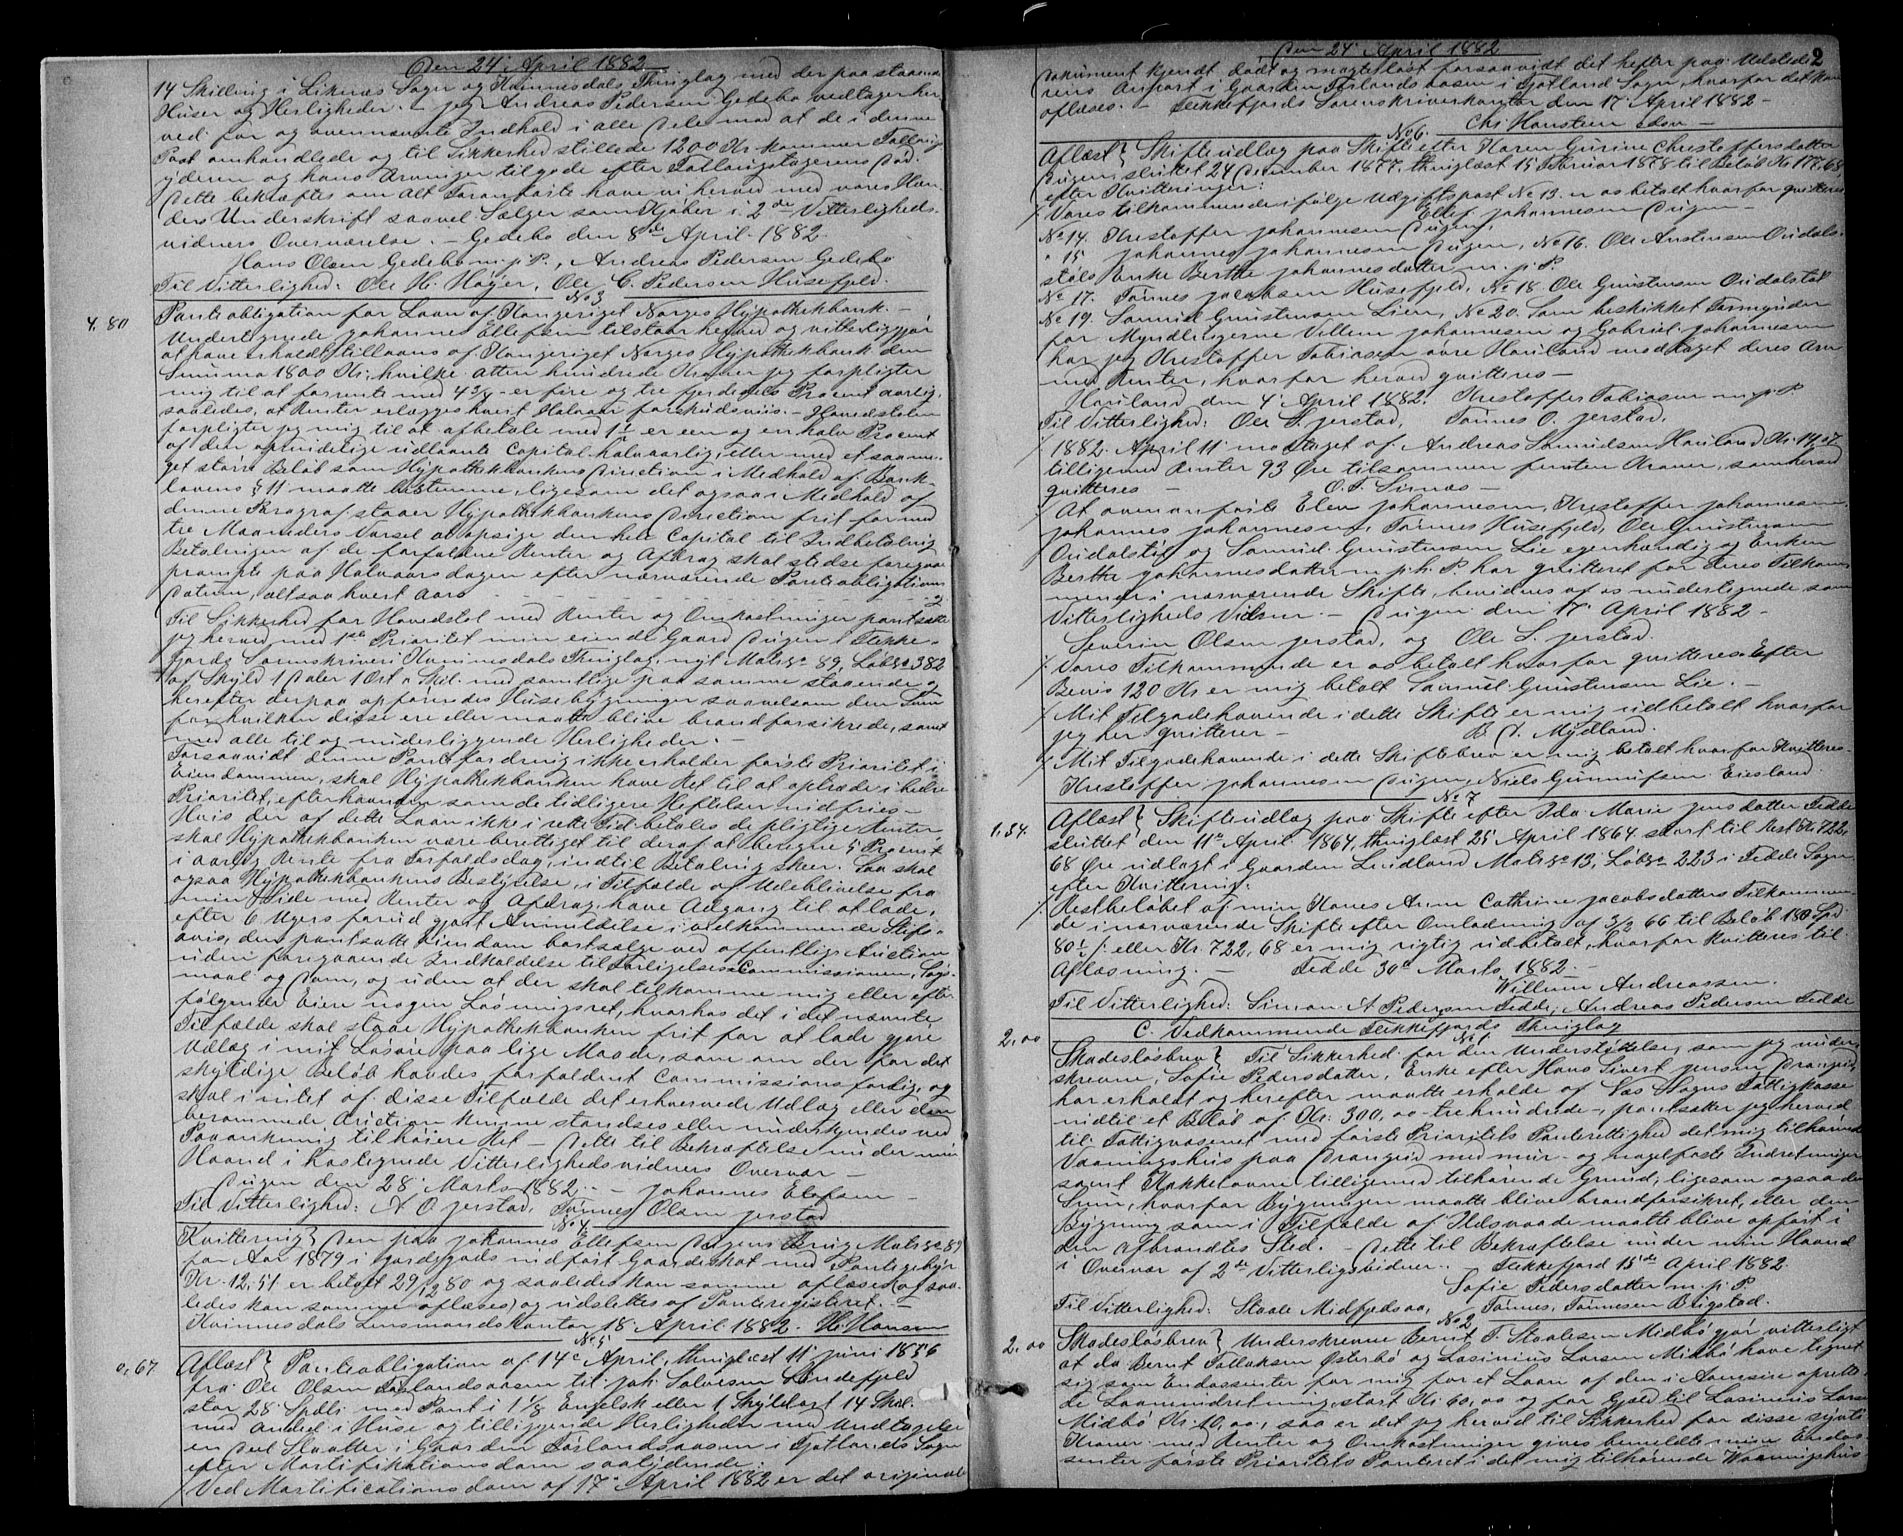 Den 24' April 1882
14 Skilling i Likenæs Sogn og Kvinnesdals Thinglag med der paa staaende
Huser og Herligheder. – Jeg Andreas Pedersen Gedebo vedtager her
ved for og ovennævnte Indhold i alle Dele mod at de i denne
Post omhandlede og til Sikkerhed stillede 1200 Kr. kommer
yderen og hans Arvinger tilgode efter Død.
Dette bekræftes om alt Foranførte have vi herved med vores Hæn-
ders Underskrift saavel Sælger som Kjøber i 2de Vitterligheds-
vidners Overværelse. – Gedebo den 8de April 1882.
Hans Olsen Gedebo m. p. P., Andreas Pedersen Gedebo
Til Vitterlighed: Ole H. Høyer, Ole C. Pedersen Husefjeld.
No 3
4.80 Panteobligation for Laan af Kongeriget Norges Hypothekbank. –
Undertegnede Johannes Ellefsen tilstaar herved og vitterliggjør
at have erholdt tillaans af Kongeriget Norges Hypothekbank den
Summa 1800 Kr., hvilke atten hundrede Kroner jeg forpligter
mig til at forrente med 4 3/4 – er fire og tre fjerdedels Procent aarlig,
saaledes, at Renter erlægges hvert Halvaar forskudsviis. – Hovedstolen
forpligter jeg mig til at afbetale med 1½ er een og en halv Procent
af den oprindelige udlaante Capital halvaarlig, eller med et saa me-
get større Beløb som Hypothekbankens Direction i Medhold af Bank-
lovens § 11 maatte bestemme, ligesom det ogsaa i Medhold af
denne Paragraf staaer Hypothekbankens Direction frit for med
tre Maaneders Varsel at opsige den hele Capital til Indbetaling
Betalingen af de forfaldne Renter og Afdrag skal stedse foregaa
prompte paa Halvaarsdagen efter nærværende Panteobligations
Datum, altsaa hvert Aars
Til Sikkerhed for Hovedstol med Renter og Omkostninger pantsætter
jeg herved med 1ste Prioritet min eiende Gaard Dugen i Flekke-
fjords Sorenskriveri Kvinnesdals Thinglag, nyt Mats. No 89, Løbeno 382
af Skyld 1 Daler 1 Ort Skil. med samtlige paa samme staaende og
herefter derpaa opførendes Husebygninger saavelsom den Sum
for hvilken disse ere eller maatte blive brandforsikrede, samt
med alle til og underliggende Herligheder. –
Forsaavidt denne Pantefordring ikke erholder første Prioritet i
Eiendommen, skal Hypothekbanken have Ret til at optræde i bedre
Prioritet, efterhaanden som de tidligere Heftelser udfries –
Hvis der af dette Laan ikke i rette Tid betales de pligtige Renter
skal Hypothekbanken være berettiget til deraf at beregne 5 Procent
i aarlig Rente fra Forfaldsdag, indtil Betaling skeer. Saa skal
ogsaa Hypothekbankens Bestyrelse, i Tilfælde af Udeblivelse fra
min Side med Renter og Afdrag, have Adgang til at lade,
efter 6 Ugers forud gjort Anmeldelse i vedkommende Stifts-
avis, den pantsatte Eiendom bortsælge ved offentlig Auction
uden foregaaende Indkaldelse til Forligelsescommissionen, Søgs-
maal og Dom, og uden at der skal tilkomme mig eller efter-
følgende Eiere nogen Løsningsret, hvorhos det i det nævnte
Tilfælde skal staae Hypothekbanken frit for at lade gjøre
Udlæg i mit Løsøre paa lige Maade, som om der for det
skyldige Beløb havdes forfaldent Commissionsforlig, og
skal i intet af disse Tilfælde det erhvervede Udlæg eller den
berammede Auction kunne standses eller underkjendes ved
Paaankning til høiere Ret – Dette til Bekræftelse under min
Haand i hostegnede Vitterlighedsvidners Overvær –
Dugen den 28' Marts 1882. – Johannes Elefsen –
Til Vitterlighed: A O Jerstad, Tønnes Olsen Jerstad
No 4
Kvittering} Den paa Johannes Ellefsen Dugens Brug Mats. No 89
for Aar 1879 i Jordegods indført Gaardeskat med Pantegebyr
Kr. 12,51 er betalt 29/12 80 og saaledes kan samme aflæses (og saa-
ledes kan samme aflæses) og udslettes af Panteregisteret. –
Kvinnesdals Lensmandskontor 18' April 1882. H. Hansen
No 5
0,67 Aflæst} Panteobligation af 14' April, thinglæst 11' Juni 1856
fra Ole Olsen Førlandsaasen til Joh. Salvesen Lindefjeld
stor 28 Spdl. med Pant i 1 1/8 Engelsk eller 1 Skyldort 14 Skil.
med Andel i Huse og tilliggende Herligheder med Undtagelse
en Deel Slaatter i Gaarden Førlandsaasen i Fjotlands Sogn
efter Mortifikationsdom saalydende:
Ved Mortificationsdom af 17' April 1882 er det originale
Den 24' April 1882 2
Dokument kjendt dødt og magtesløst forsaavidt det hefter paa Udsteder-
ens Anpart i Gaarden Førlandsaasen i Fjotland Sogn, hvorfor det kan
aflæses. – Flekkefjords Sorenskriverkontor den 17' April 1882 –
Chr. Hansteen
No 6.
Aflæst} Skifteudlæg paa Skifte efter Karen Gurine Christoffersdatter
Dugen sluttet 24' December 1877, thinglæst 15' Februar 1878 til Beløb Kr. 177,68
efter Kvitteringer:
/. Vores tilkommende ifølge Udgiftspost No 13. er os betalt hvorfor qvitteres
Ellef Johannesen Dugen –
No 14. Kristoffer Johannesen Dugen,
" 15 Johannes Johannesen Dugen, No 16. Ole Austensen Oudals-
støls Enke Berthe Johannesdatter m. p. P.
No 17. Tønnes Jacobsen Husefjeld, No 18 Ole Gunstensen Oudalstøl
No 19. Samuel Gunstensen Lien, No 20. Som beskikket Formynder
for Myndlingerne Villem Johannesen og Gabriel Johannesen
har jeg Kristoffer Tobiasen øvre Houland modtaget deres Arv
med Renter, hvorfor herved qvitteres –
Houland den 4' April 1882. Kristoffer Tobiasen m. p. P.
Til Vitterlighed: Ole S. Jerstad, Tønnes O. Jerstad.
/. 1882 April 11' modtaget af Andreas Samuelsen Houland Kr. 14,07
tilligemed Renter 93 Øre tilsammen femten Kroner, som herved
qvitteres – O. T. Sirnæs –
/. At ovenanførte Elen Johannesen, Kristoffer Johannesen,
Johannes Johannesen, Tønnes Husefjeld, Ole Gunstensen
Oudalstøl og Samuel Gunstensen Lie egenhændig og Enken
Berthe Johannesdatter m. p. h. P. har qvitteret for deres Tilkom-
mende i nærværende Skifte, bevidnes af os undertegnede som
Vitterligheds Vidner. – Dugen den 17' April 1882 –
Severin Olsen Jerstad, og Ole S. Jerstad.
/. Vores Tilkommende er os betalt hvorfor qvitteres Efter
Bevis 120 Kr. er mig betalt Samuel Gunstensen Lie. –
/. Mit Tilgodehavende i dette Skifte er mig udbetalt hvorfor
jeg her qvitterer – B. D. Mydland.
/. Mit Tilgodehavende i dette Skiftebrev er mig betalt hvorfor Kvitteres –
Kristoffer Johannesen Dugen, Niels Gunnufsen Eiesland
No 7
1.34 Aflæst} Skifteudlæg paa Skifte efter Ida Marie Jensdatter Fedde
sluttet den 11te April 1864, thinglæst 25' April 1864 stort til Rest Kr. 722,
68 Øre udlagt i Gaarden Lindland Mats. No 13, Løbno 223 i Fedde Sogn
efter Kvittering:
/. Restbeløbet af min Kones Anne Cathrine Jacobsdatters Tilkommen-
de i nærværende Skifte efter Omlodning af 3/2 66 til Beløb 180 Spd
80½ ß eller Kr. 722,68 er mig rigtig udbetalt, hvorfor Kvitteres til
Aflæsning. – Fedde 30te Marts 1882. –
Willum Andreassen.
Til Vitterlighed: Simon A Pedersen Fedde, Andreas Pedersen Fedde
C. Vedkommende Flekkefjords Thinglag
No 1.
2.00 Skadesløsbrev} Til Sikkerhed for den Understøttelse, som jeg under-
skrevne, Sofie Pedersdatter, Enke efter Hans Sivert Jensen Drangeid,
har erholdt og herefter maatte erholde af Næs Sogns Fattigkasse
indtil et Beløb af Kr. 300,00 – trehundrede –, pantsætter jeg herved
til Fattigvæsenet med første Prioritets Panterettighed det mig tilhørende
Vaaningshus paa Drangeid med mur- og nagelfaste Indretninger
samt Kakkelovne tilligemed tilhørende Grund, ligesom ogsaa den
Sum, hvorfor Bygningen maatte blive brandforsikret, eller den
Bygning som i Tilfælde af Ildsvaade maatte blive opført i
den afbrændtes Sted. – Dette til Bekræftelse under min Haand
i Overvær af 2de Vitterligsvidner. – Flekkefjord 15de April 1882
Sofie Pedersdatter m. p. P.
Til Vitterlighed: Staale Midfjedsaa, Tønnes Tønnesen Bligstad.
No 2
2.00 Skadesløsbrev} Underskrevne Bernt T. Staalesen Midbø gjør vitterligt
at da Bernt Tollaksen Østerbø og Lasinius Larsen Midbø have tegnet
sig som Endossenter for mig for et Laan af den i Aamsire oprette-
de Laaneindretning, stort Kr. 60,00 og for Gjeld til Lasinius Larsen
Midbø Kr. 10,00, saa er det jeg herved til Sikkerhed for disse sytti
Kroner med Renter og Omkostninger gives bemeldte mine Endos-
senter første Prioritets Panteret i det mig tilhørende Vaaningshus